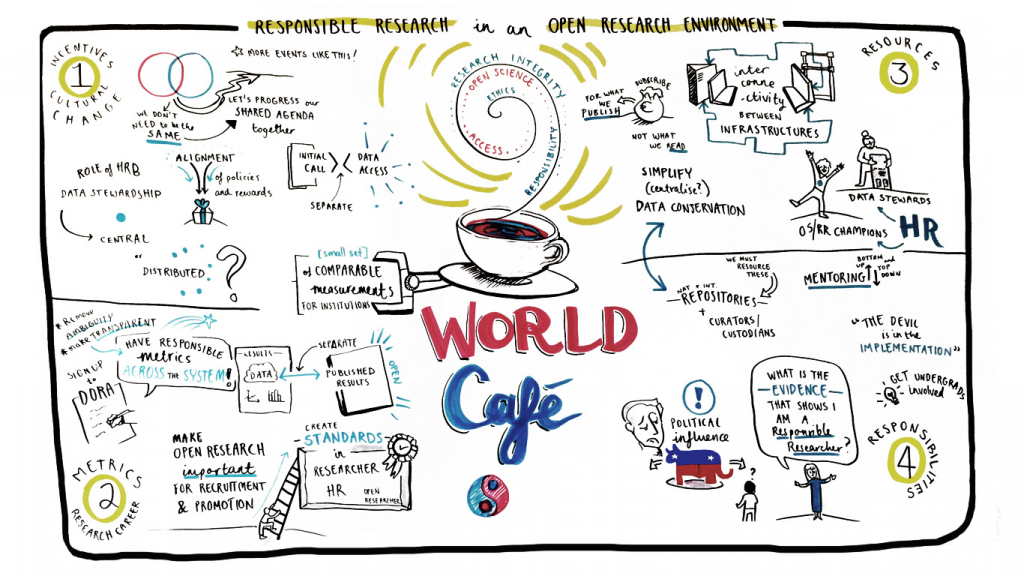 RESPONSIBLE RESEARCH in an OPEN RESEARCH ENVIRONMENT
1
INCENTIVES
CULTURAL
CHANGE
MORE EVENTS LIKE THIS!
WE DON'T
NEED to be the
SAME
LET'S PROGRESS our
SHARED AGENDA
together
ROLE of HRB
DATA STEWARDSHIP
CENTRAL
or
DISTRIBUTED
?
ALIGNMENT
of policies
and rewards
INITIAL
CALL
DATA
ACCESS
SEPARATE
[small set]
of COMPARABLE
measurements
FOR INSTITUTIONS
RESEARCH INTEGRITY
OPEN SCIENCE
ETHICS
ACCESS.
RESPONSIBILITY
WORLD
Café
* REMOVE
AMBIGUITY
* make TRANSPARENT
HAVE RESPONSIBLE
metrics
ACROSS the SYSTEM!
SIGN UP
to
DORA
RESULTS
DATA
SEPARATE
PUBLISHED
RESULTS
OPEN
MAKE
OPEN RESEARCH
important
FOR RECRUITMENT
& PROMOTION
CREATE
STANDARDS
in
RESEARCHER
HR
OPEN
RESEARCHER
METRICS
2
RESEARCH CAREER
RESOURCES
3
SUBSCRIBE
FOR WHAT
WE
PUBLISH
NOT WHAT
WE READ
inter
conne
-ctivity
BETWEEN
INFRASTRUCTURES
SIMPLIFY
(centralise?)
DATA CONSERVATION
DATA STEWARDS
OS/RR CHAMPIONS
HR
WE MUST
RESOURCE
THESE
NAT + INT.
REPOSITORIES
+
CURATORS/
CUSTODIANS
MENTORING
BOTTOM
UP
and
TOP
DOWN
"THE DEVIL
is in the
IMPLEMENTATION"
!
POLITICAL
influence
WHAT IS THE
EVIDENCE
THAT SHOWS I
AM A
Responsible
Researcher?
?
GET UNDERGRADS
involved
RESPONSIBILITIES
4